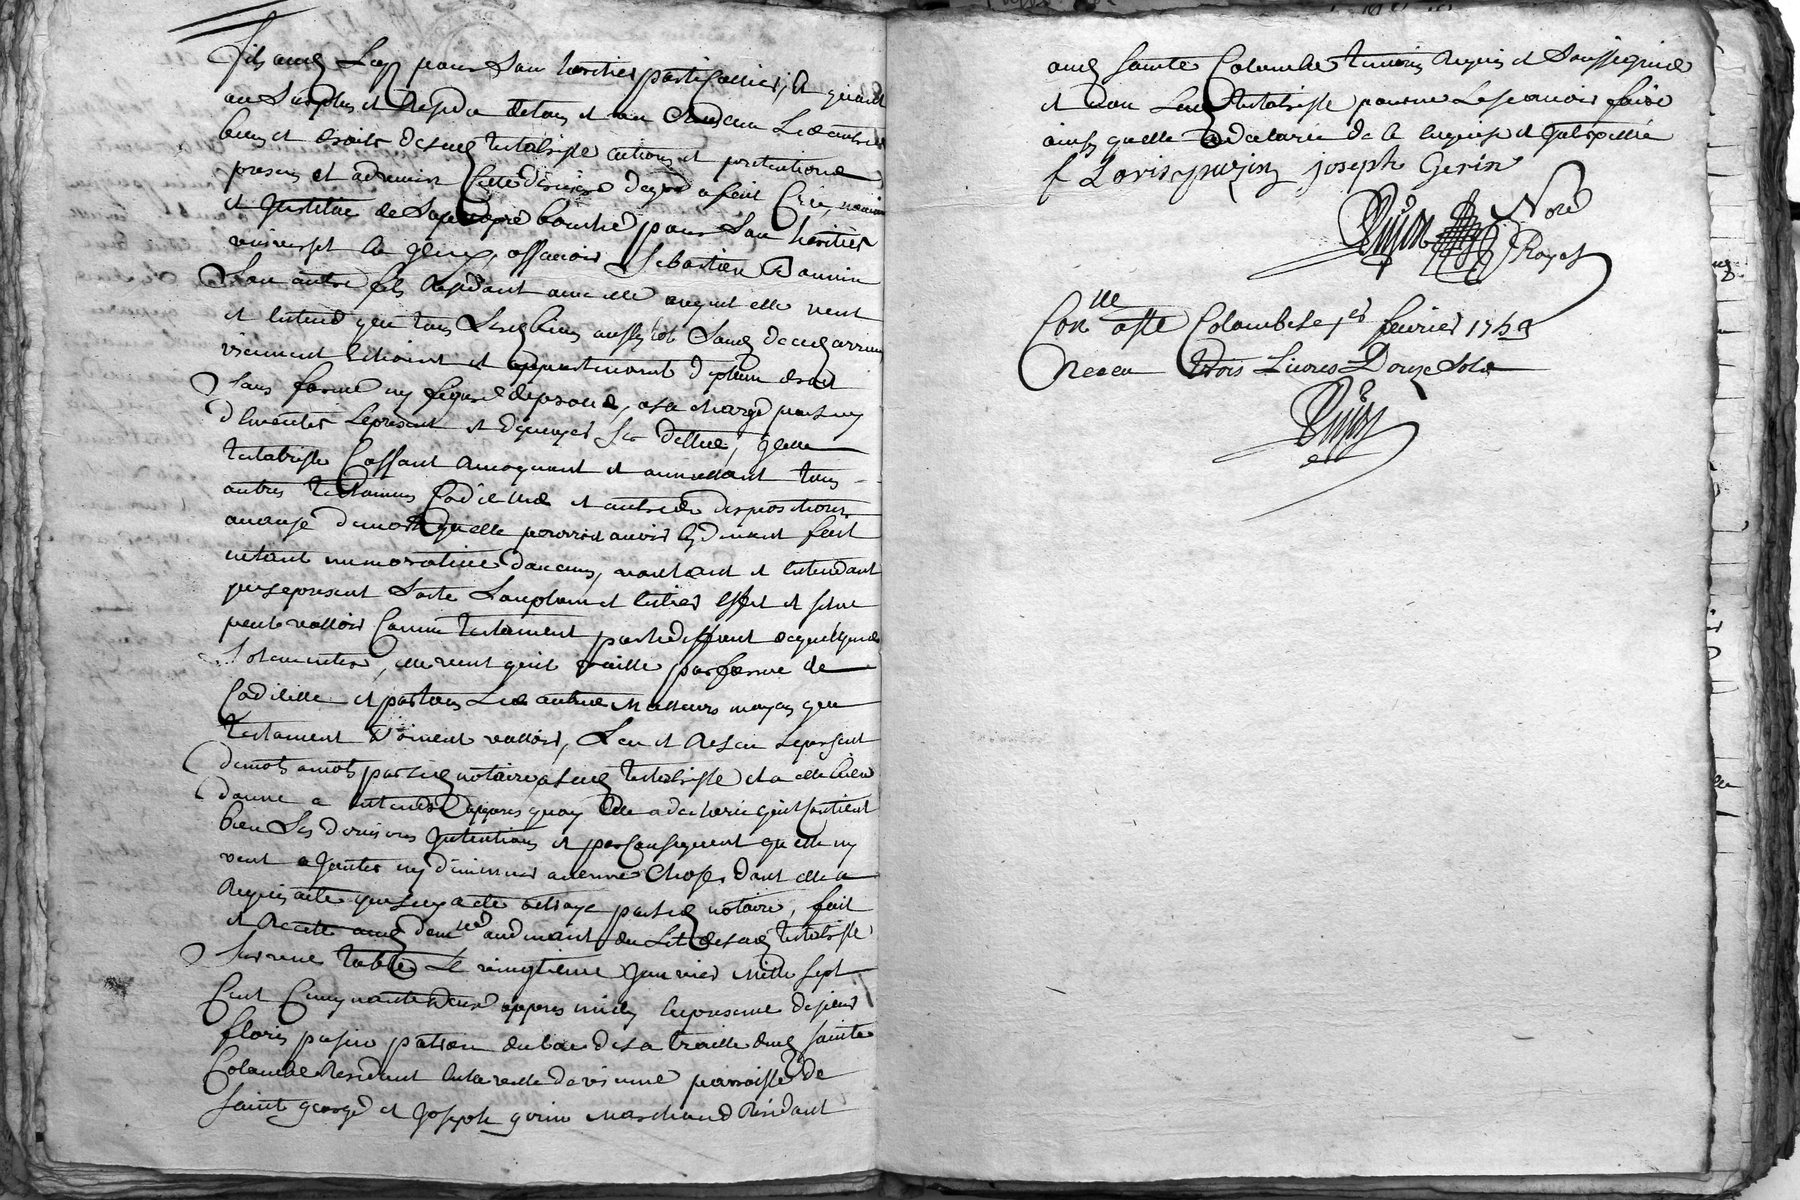 fils aud Lap pour Son heritier particullier, Et quant
au Surplus et Residu de tous et un Chacun Les autres
biens et droits de lad testatrisse actions et pretentions
presens et advenir Cette derniere dejad a fait Cree, nommé
et Institue de Sa propre bouche pour Son heritier
universel Sebastien Bonnin
Son autre fils Residant avec elle auquel elle veut
et entend que tous Sesd biens aussytot Sond deced arrivé
viennent Echoient et appartienent de plein droit
Sans forme ny figure de proces, a sa charge par luy
d'heriter Le present et de payer Ses dettes, Icelle
testatrisse Cassant Revoquant et annullant tous
autres testamens Codicilles et autres dispositions
a cause de mort qu'elle pourroit avoir cy devant fait
n'etant memorative d'aucuns, voulant et entendant
que le present Sorte Son plain et entier effet et S'il ne
peut valloir Comme testament par deffaut de quelques
Solemnites, elle veut qu'il vaille par forme de
Codicille et par tous Les autres Meilleurs moyens que
testament peuvent valloir, Leu et Releu Le present
de mots a mots par led notaire a lad testatrisse et a elle bien
donné a entendre appres quoy Elle a declaré qu'il contient
bien Ses dernieres Intentions et par Consequent qu'elle ny
veut ajouter ny diminuer aucune Chose, dont elle a
Requis acte que luy a eté octroyé par led notaire, fait
et Recitté aud dom.re audevant du Lit de lad testatrisse
Sur une table Le vingtieme Janvier Mille Sept
Cent Cinquante deux appres midy en presence de Sieur
floris pusin patron du bac de la traille dud Sainte
Colombe Residant en la ville de vienne parroisse de
Saint george et Joseph gerin Marchand Residant
aud Sainte Colombe temoins Requis et Soussignés
et non Lad testatrisse pour ne Le Scavoir faire
ainsy quelle a declarée de ce enquise et Interpellée
f Loris puzin joseph Gerin
Nore
Royal
Con.lle a Ste Colombe Le 1er fevrier 1752
Receu trois Livres Douze Sols